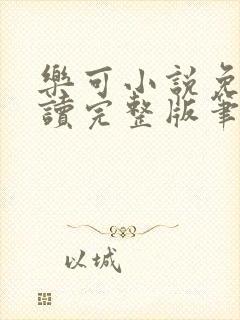 樂可小說免
讀完整版筆
以城